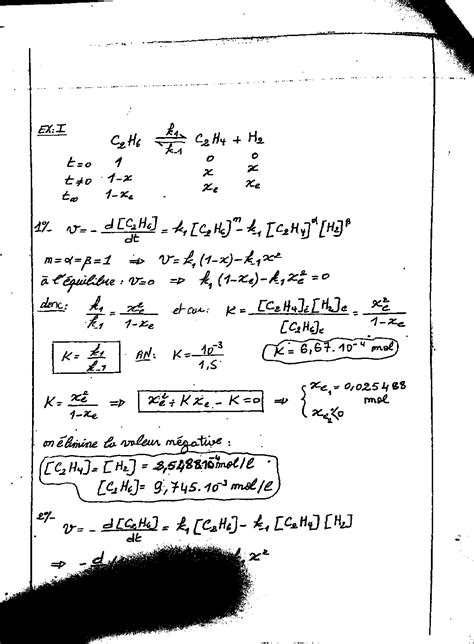 EX:I
C2H6 ⇌ C2H4 + H2
k1
k-1
t=0 1 0 0
t≠0 1-x x x
t∞ 1-xe xe xe
1%- v = - d[C2H6]/dt = k1[C2H6]^m - k-1[C2H4]^α[H2]^β
m=α=β=1 ⇒ v = k1(1-x) - k-1x²
à l'équilibre : v=0 ⇒ k1(1-xe) - k-1xe² = 0
donc: k1/k-1 = xe²/(1-xe) et car: K = [C2H4]e[H2]e/[C2H6]e = xe²/(1-xe)
K = k1/k-1 AN: K = 10^-3/1,5 K = 6,67.10^-4 mol
K = xe²/(1-xe) ⇒ xe² + Kxe - K = 0 ⇒ { xe1 = 0,025488 mol
xe2<0
on élimine la valeur négative :
[C2H4] = [H2] = 2,548810^-4 mol/l
[C2H6] = 9,745.10^-3 mol/l
2%- v = - d[C2H6]/dt = k1[C2H6] - k-1[C2H4][H2]
⇒ - d x²